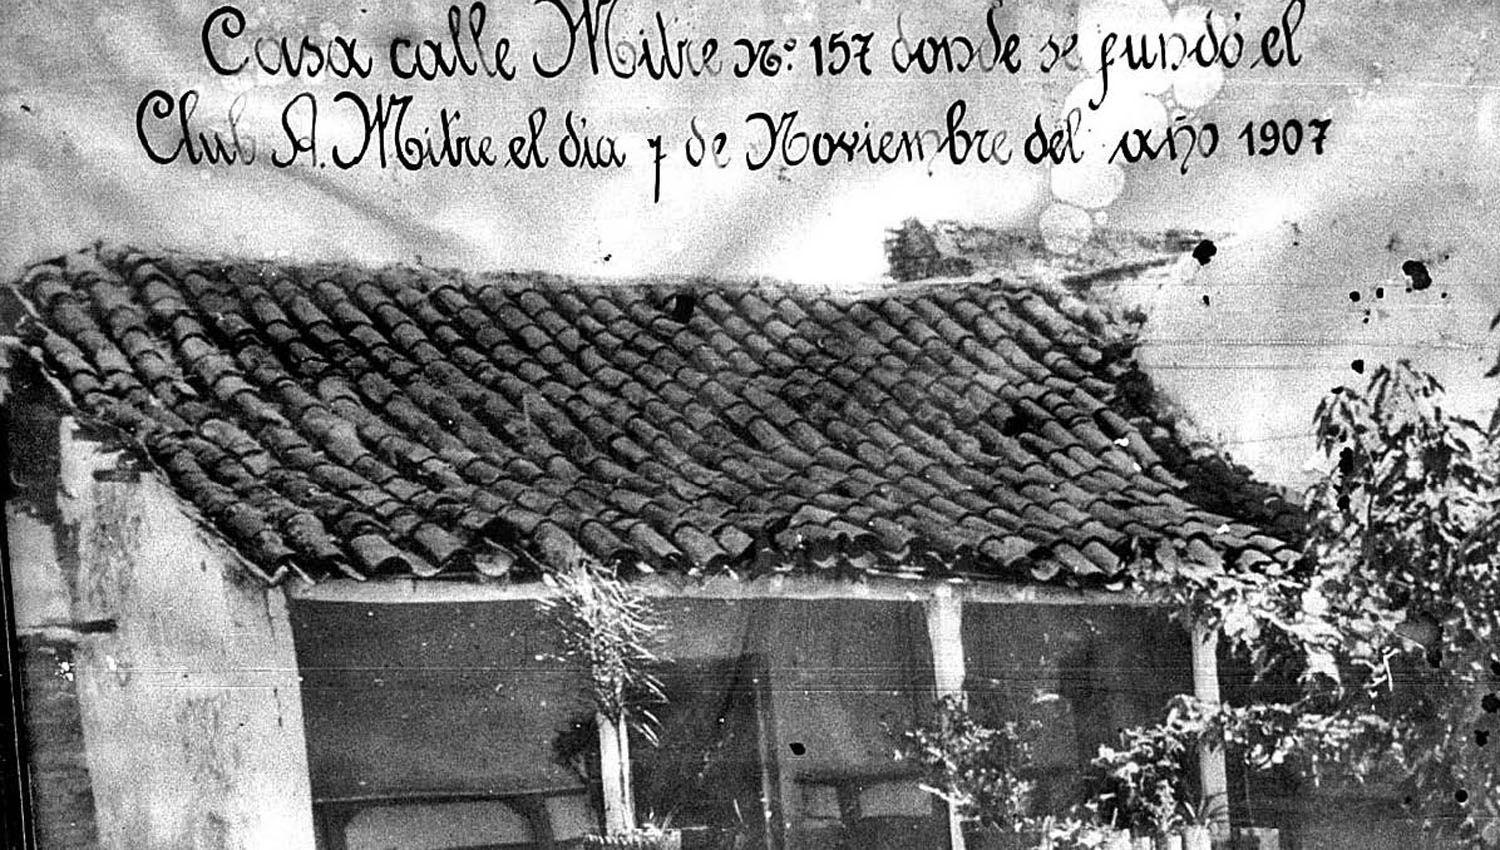 Casa calle Mitre Nº: 157 donde se fundó el
Club A. Mitre el dia 7 de Noviembre del año 1907